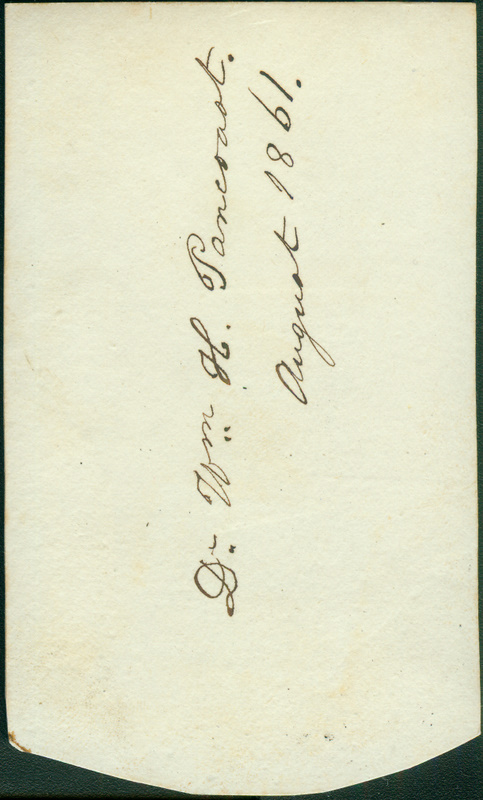 Dr. Wm. H. Pancoast.
August 1861.